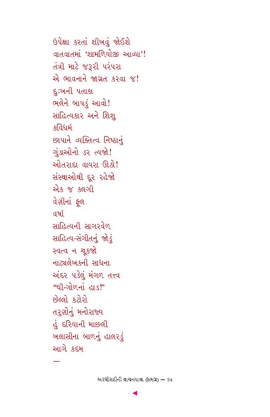 ઉપેક્ષા કરતાં શીખવું જોઈશે
વાતવાતમાં 'શામળિયોજી આવ્યા'!
તંત્રી માટે જરૂરી પરંપરા
એ ભાવનાને જાગ્રત કરવા જ!
દુઃખની પતાકા
ભલેને બાપડું આવો!
સાહિત્યકાર અને શિશુ
કવિધર્મ
છાપાને વ્યક્તિત્વ નિષ્ઠાનું
ગુંડાઓનો ડર ત્યજો!
ઓતરાદા વાયરા ઊઠો!
સંસ્થાઓથી દૂર રહેજો
એક જ કલગી
વેણીનાં ફૂલ
વર્ષા
સાહિત્યની સાગરવેળ
સાહિત્ય-સંગીતનું જોડું
સ્વત્વ ન ચૂકજો
નાટ્યલેખકની સાધના
અંદર પડેલું મંગળ તત્ત્વ
"ઘી-ગોળનાં હાડ!"
છેલ્લો કટોરો
તરુણોનું મનોરાજ્ય
હું દરિયાની માછલી
ખલાસીના બાળનું હાલરડું
આગે કદમ
—